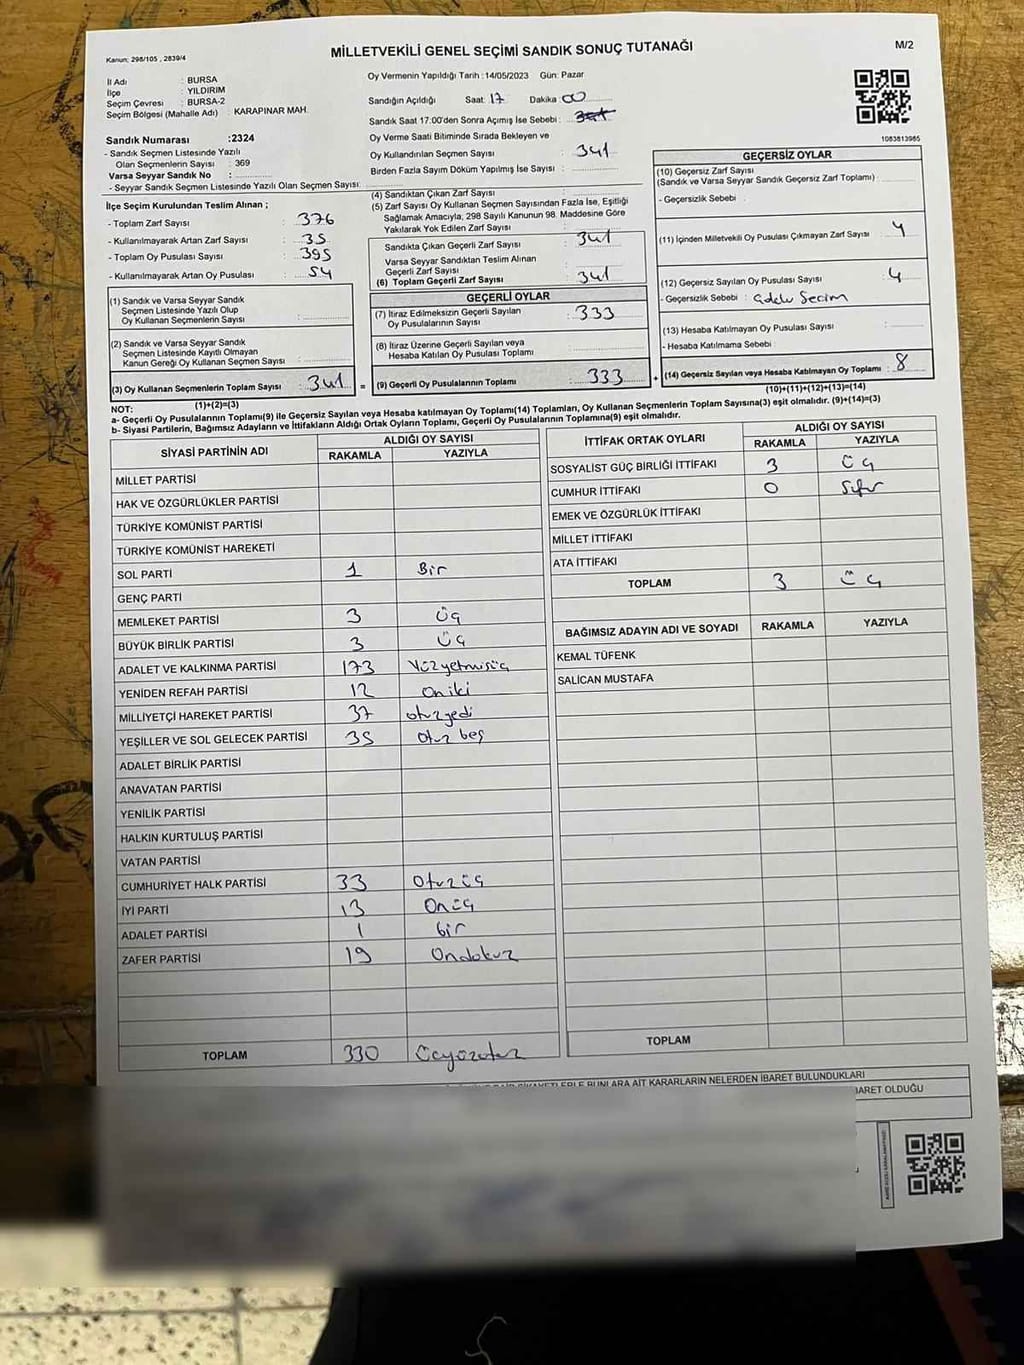 Kanun; 298/105 , 2839/4
MİLLETVEKİLİ GENEL SEÇİMİ SANDIK SONUÇ TUTANAĞI
M/2
İl Adı : BURSA
İlçe : YILDIRIM
Seçim Çevresi : BURSA-2
Seçim Bölgesi (Mahalle Adı) : KARAPINAR MAH.
Sandık Numarası :2324
- Sandık Seçmen Listesinde Yazılı
Olan Seçmenlerin Sayısı : 369
Varsa Seyyar Sandık No :
- Seyyar Sandık Seçmen Listesinde Yazılı Olan Seçmen Sayısı:
İlçe Seçim Kurulundan Teslim Alınan ;
- Toplam Zarf Sayısı : 376
- Kullanılmayarak Artan Zarf Sayısı : 35
- Toplam Oy Pusulası Sayısı : 395
- Kullanılmayarak Artan Oy Pusulası : 54
(1) Sandık ve Varsa Seyyar Sandık
Seçmen Listesinde Yazılı Olup
Oy Kullanan Seçmenlerin Sayısı :
(2) Sandık ve Varsa Seyyar Sandık
Seçmen Listesinde Kayıtlı Olmayan
Kanun Gereği Oy Kullanan Seçmen Sayısı :
(3) Oy Kullanan Seçmenlerin Toplam Sayısı : 341
(1)+(2)=(3)
Oy Vermenin Yapıldığı Tarih : 14/05/2023 Gün: Pazar
Sandığın Açıldığı Saat: 17 Dakika : 00
Sandık Saat 17:00'den Sonra Açımış İse Sebebi :
Oy Verme Saati Bitiminde Sırada Bekleyen ve
Oy Kullandırılan Seçmen Sayısı : 341
Birden Fazla Sayım Döküm Yapılmış İse Sayısı :
(4) Sandıktan Çıkan Zarf Sayısı :
(5) Zarf Sayısı Oy Kullanan Seçmen Sayısından Fazla İse, Eşitliği
Sağlamak Amacıyla, 298 Sayılı Kanunun 98. Maddesine Göre
Yakılarak Yok Edilen Zarf Sayısı :
Sandıkta Çıkan Geçerli Zarf Sayısı : 341
Varsa Seyyar Sandıktan Teslim Alınan
Geçerli Zarf Sayısı :
(6) Toplam Geçerli Zarf Sayısı : 341
GEÇERLİ OYLAR
(7) İtiraz Edilmeksizin Geçerli Sayılan
Oy Pusulalarının Sayısı : 333
(8) İtiraz Üzerine Geçerli Sayılan veya
Hesaba Katılan Oy Pusulası Toplamı :
= (9) Geçerli Oy Pusulalarının Toplamı : 333
1083813985
GEÇERSİZ OYLAR
(10) Geçersiz Zarf Sayısı
(Sandık ve Varsa Seyyar Sandık Geçersiz Zarf Toplamı) :
- Geçersizlik Sebebi :
(11) İçinden Milletvekili Oy Pusulası Çıkmayan Zarf Sayısı : 4
(12) Geçersiz Sayılan Oy Pusulası Sayısı : 4
- Geçersizlik Sebebi : Seçim
(13) Hesaba Katılmayan Oy Pusulası Sayısı :
- Hesaba Katılmama Sebebi :
+ (14) Geçersiz Sayılan veya Hesaba Katılmayan Oy Toplamı : 8
(10)+(11)+(12)+(13)=(14)
NOT:
a- Geçerli Oy Pusulalarının Toplamı(9) ile Geçersiz Sayılan veya Hesaba katılmayan Oy Toplamı(14) Toplamları, Oy Kullanan Seçmenlerin Toplam Sayısına(3) eşit olmalıdır. (9)+(14)=(3)
b- Siyasi Partilerin, Bağımsız Adayların ve İttifakların Aldığı Ortak Oyların Toplamı, Geçerli Oy Pusulalarının Toplamına(9) eşit olmalıdır.
SİYASİ PARTİNİN ADI ALDIĞI OY SAYISI
RAKAMLA YAZIYLA
MİLLET PARTİSİ
HAK VE ÖZGÜRLÜKLER PARTİSİ
TÜRKİYE KOMÜNİST PARTİSİ
TÜRKİYE KOMÜNİST HAREKETİ
SOL PARTİ 1 Bir
GENÇ PARTİ
MEMLEKET PARTİSİ 3 Üç
BÜYÜK BİRLİK PARTİSİ 3 Üç
ADALET VE KALKINMA PARTİSİ 173 Yüzyetmişüç
YENİDEN REFAH PARTİSİ 12 Oniki
MİLLİYETÇİ HAREKET PARTİSİ 37 otuzyedi
YEŞİLLER VE SOL GELECEK PARTİSİ 35 Otuz beş
ADALET BİRLİK PARTİSİ
ANAVATAN PARTİSİ
YENİLİK PARTİSİ
HALKIN KURTULUŞ PARTİSİ
VATAN PARTİSİ
CUMHURİYET HALK PARTİSİ 33 Otuzüç
İYİ PARTİ 13 Onüç
ADALET PARTİSİ 1 bir
ZAFER PARTİSİ 19 Ondokuz
TOPLAM 330 Üçyüzotuz
İTTİFAK ORTAK OYLARI ALDIĞI OY SAYISI
RAKAMLA YAZIYLA
SOSYALİST GÜÇ BİRLİĞİ İTTİFAKI 3 Üç
CUMHUR İTTİFAKI 0 Sıfır
EMEK VE ÖZGÜRLÜK İTTİFAKI
MİLLET İTTİFAKI
ATA İTTİFAKI
TOPLAM 3 Üç
BAĞIMSIZ ADAYIN ADI VE SOYADI RAKAMLA YAZIYLA
KEMAL TÜFENK
SALİCAN MUSTAFA
TOPLAM
ŞİKAYETLERLE BUNLARA AİT KARARLARIN NELERDEN İBARET BULUNDUKLARI
İBARET OLDUĞU